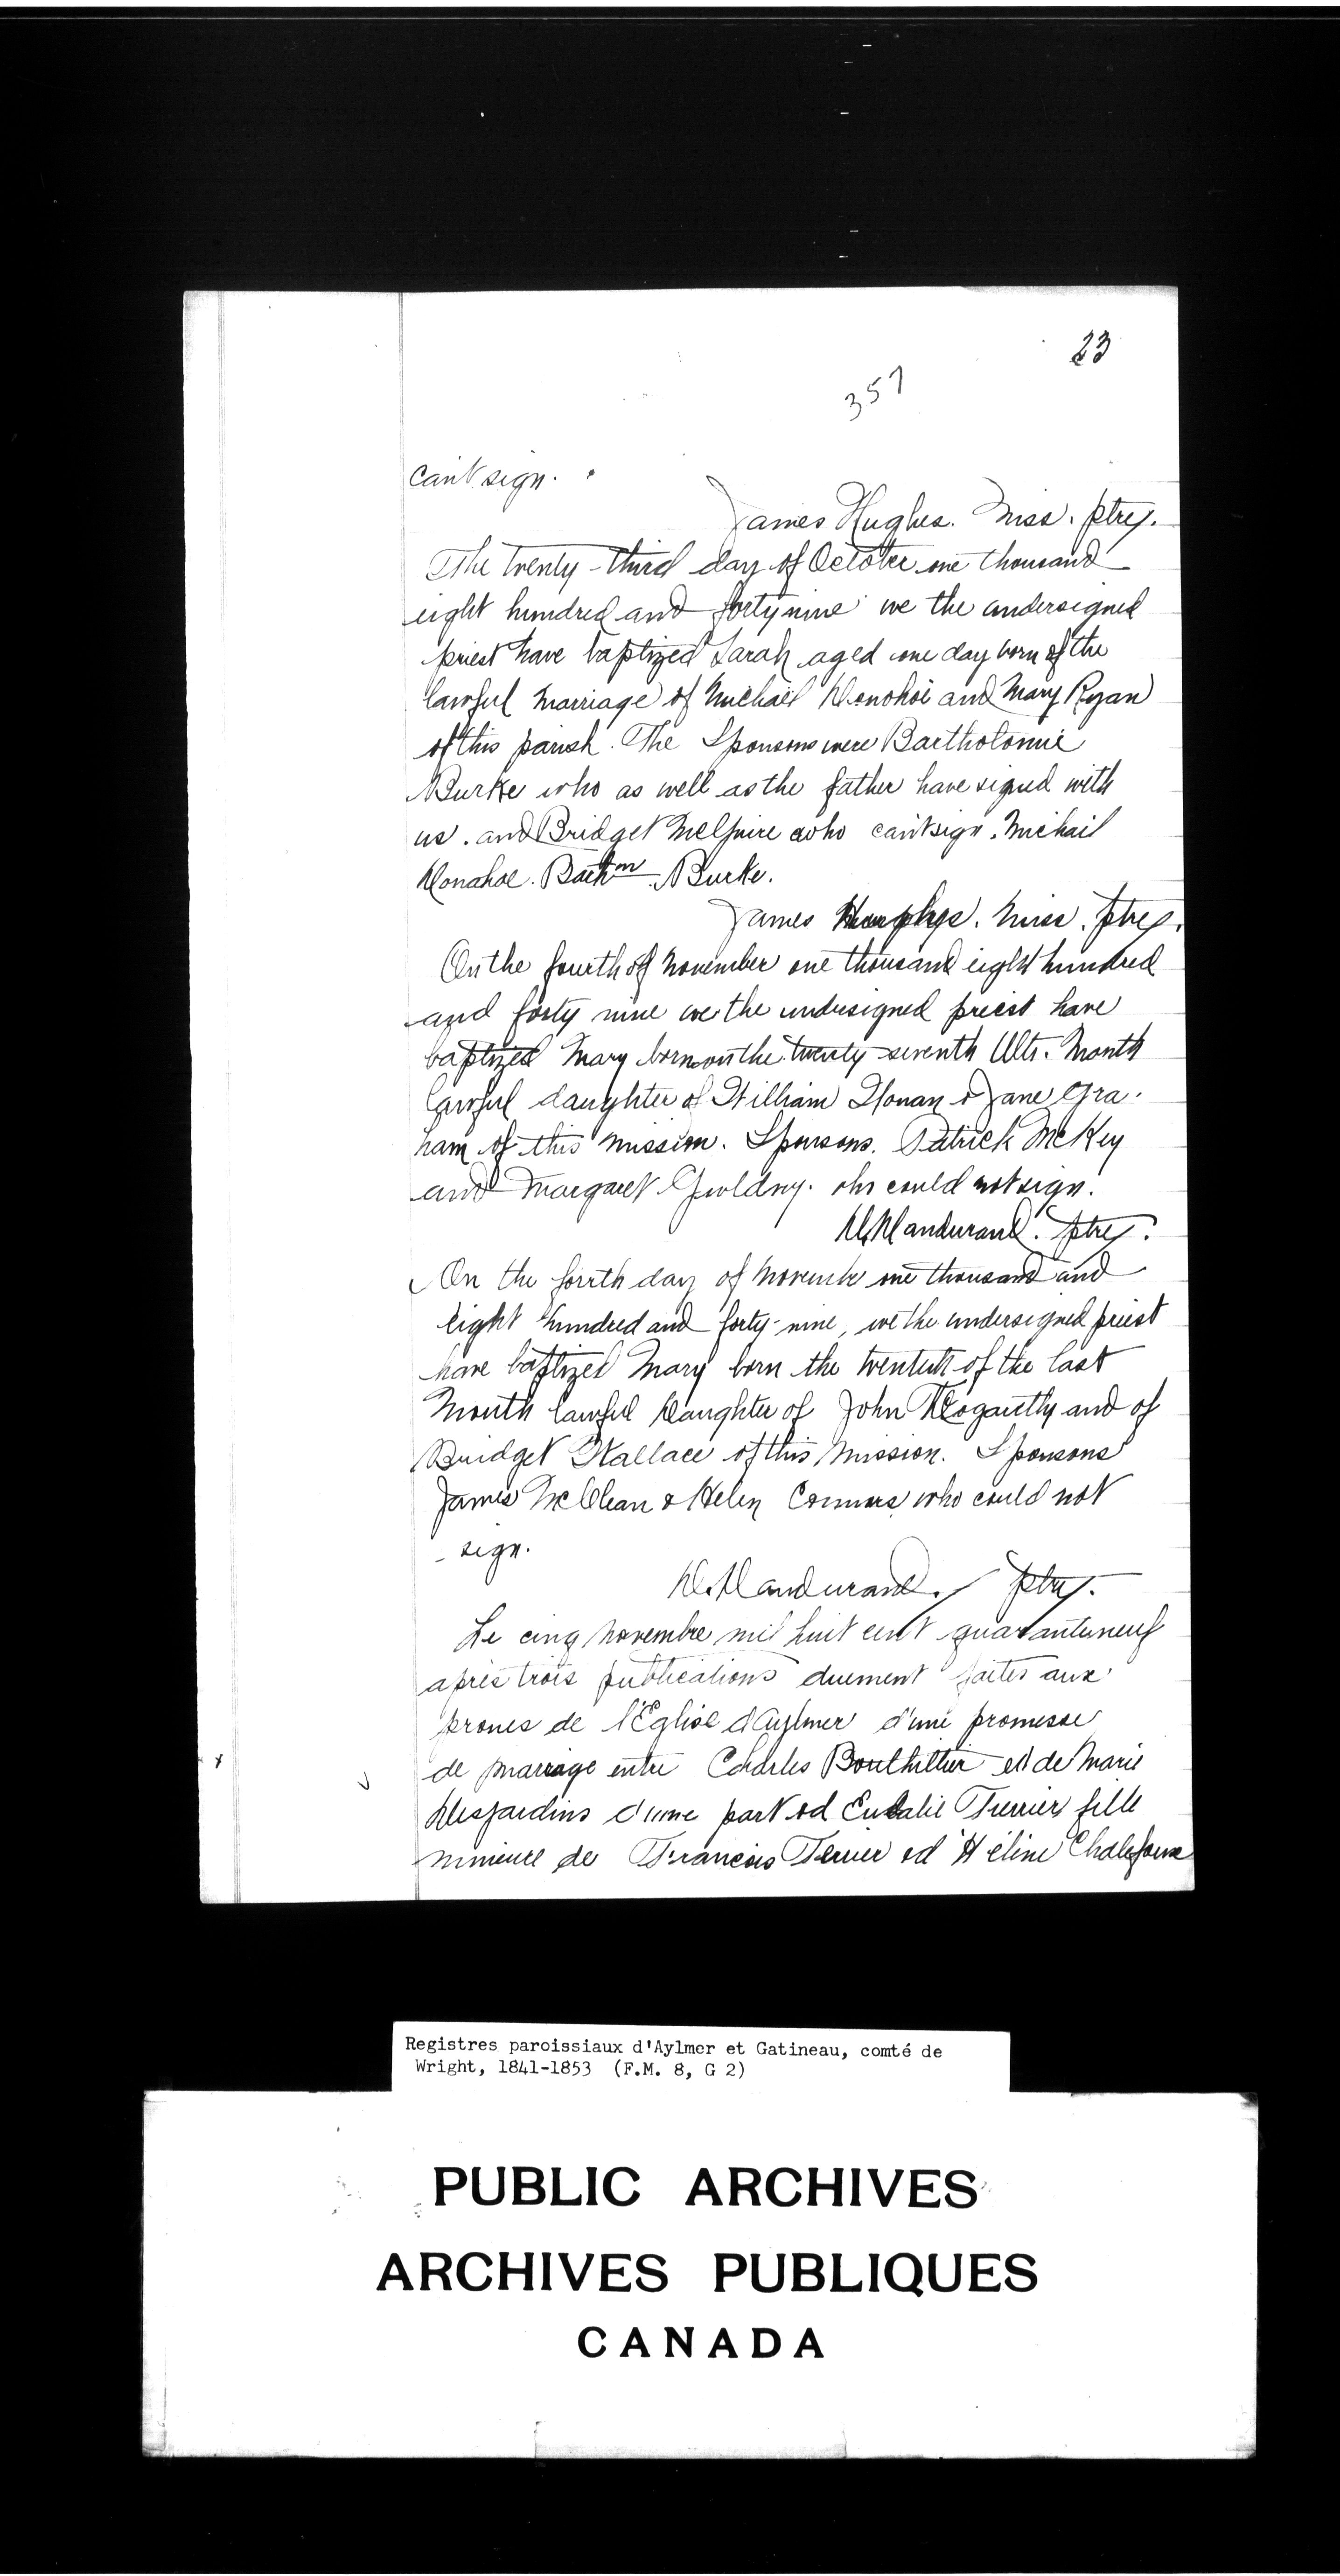 23
357
can't sign.
James Hughes. Miss. ptre.
The twenty-third day of October one thousand
eight hundred and forty nine we the undersigned
priest have baptized Sarah aged one day born of the
lawful marriage of Michael Donohoe and Mary Ryan
of this parish. The Sponsors were Bartholomie
Burke who as well as the father have signed with
us. and Bridget McGuire who can't sign. Michail
Donahoe. Barthm Burke.
James Miss. ptre.
On the fourth of November one thousand eight hundred
and forty nine we the undersigned priest have
baptized Mary born on the twenty seventh Ult. Month
lawful daughter of William & Jane Gra-
ham of this mission. Sponsons. Patrick McKey
and Margaret who could not sign.
D. Dandurand. ptre.
On the fourth day of november one thousand and
eight hundred and forty-nine, we the undersigned priest
have baptized Mary born the twentieth of the last
Month lawful Daughter of John and of
Bridget Wallace of this Mission. Sponsons
James McClean & Helen Connors who could not
sign.
D. Dandurand. ptre.
Le cinq novembre mil huit cent quarante neuf
après trois publications duement faites aux
prones de l'Eglise d'Aylmer d'une promesse
de marrage entre Charles Bouthillier et de Marie
Desjardins d'une part et Eulalie Terrier fille
mineure de Francois Terrier et Héline Chalefoux
Registres paroissiaux d'Aylmer et Gatineau, comté de
Wright, 1841-1853 (F.M. 8, G 2)
PUBLIC ARCHIVES
ARCHIVES PUBLIQUES
CANADA